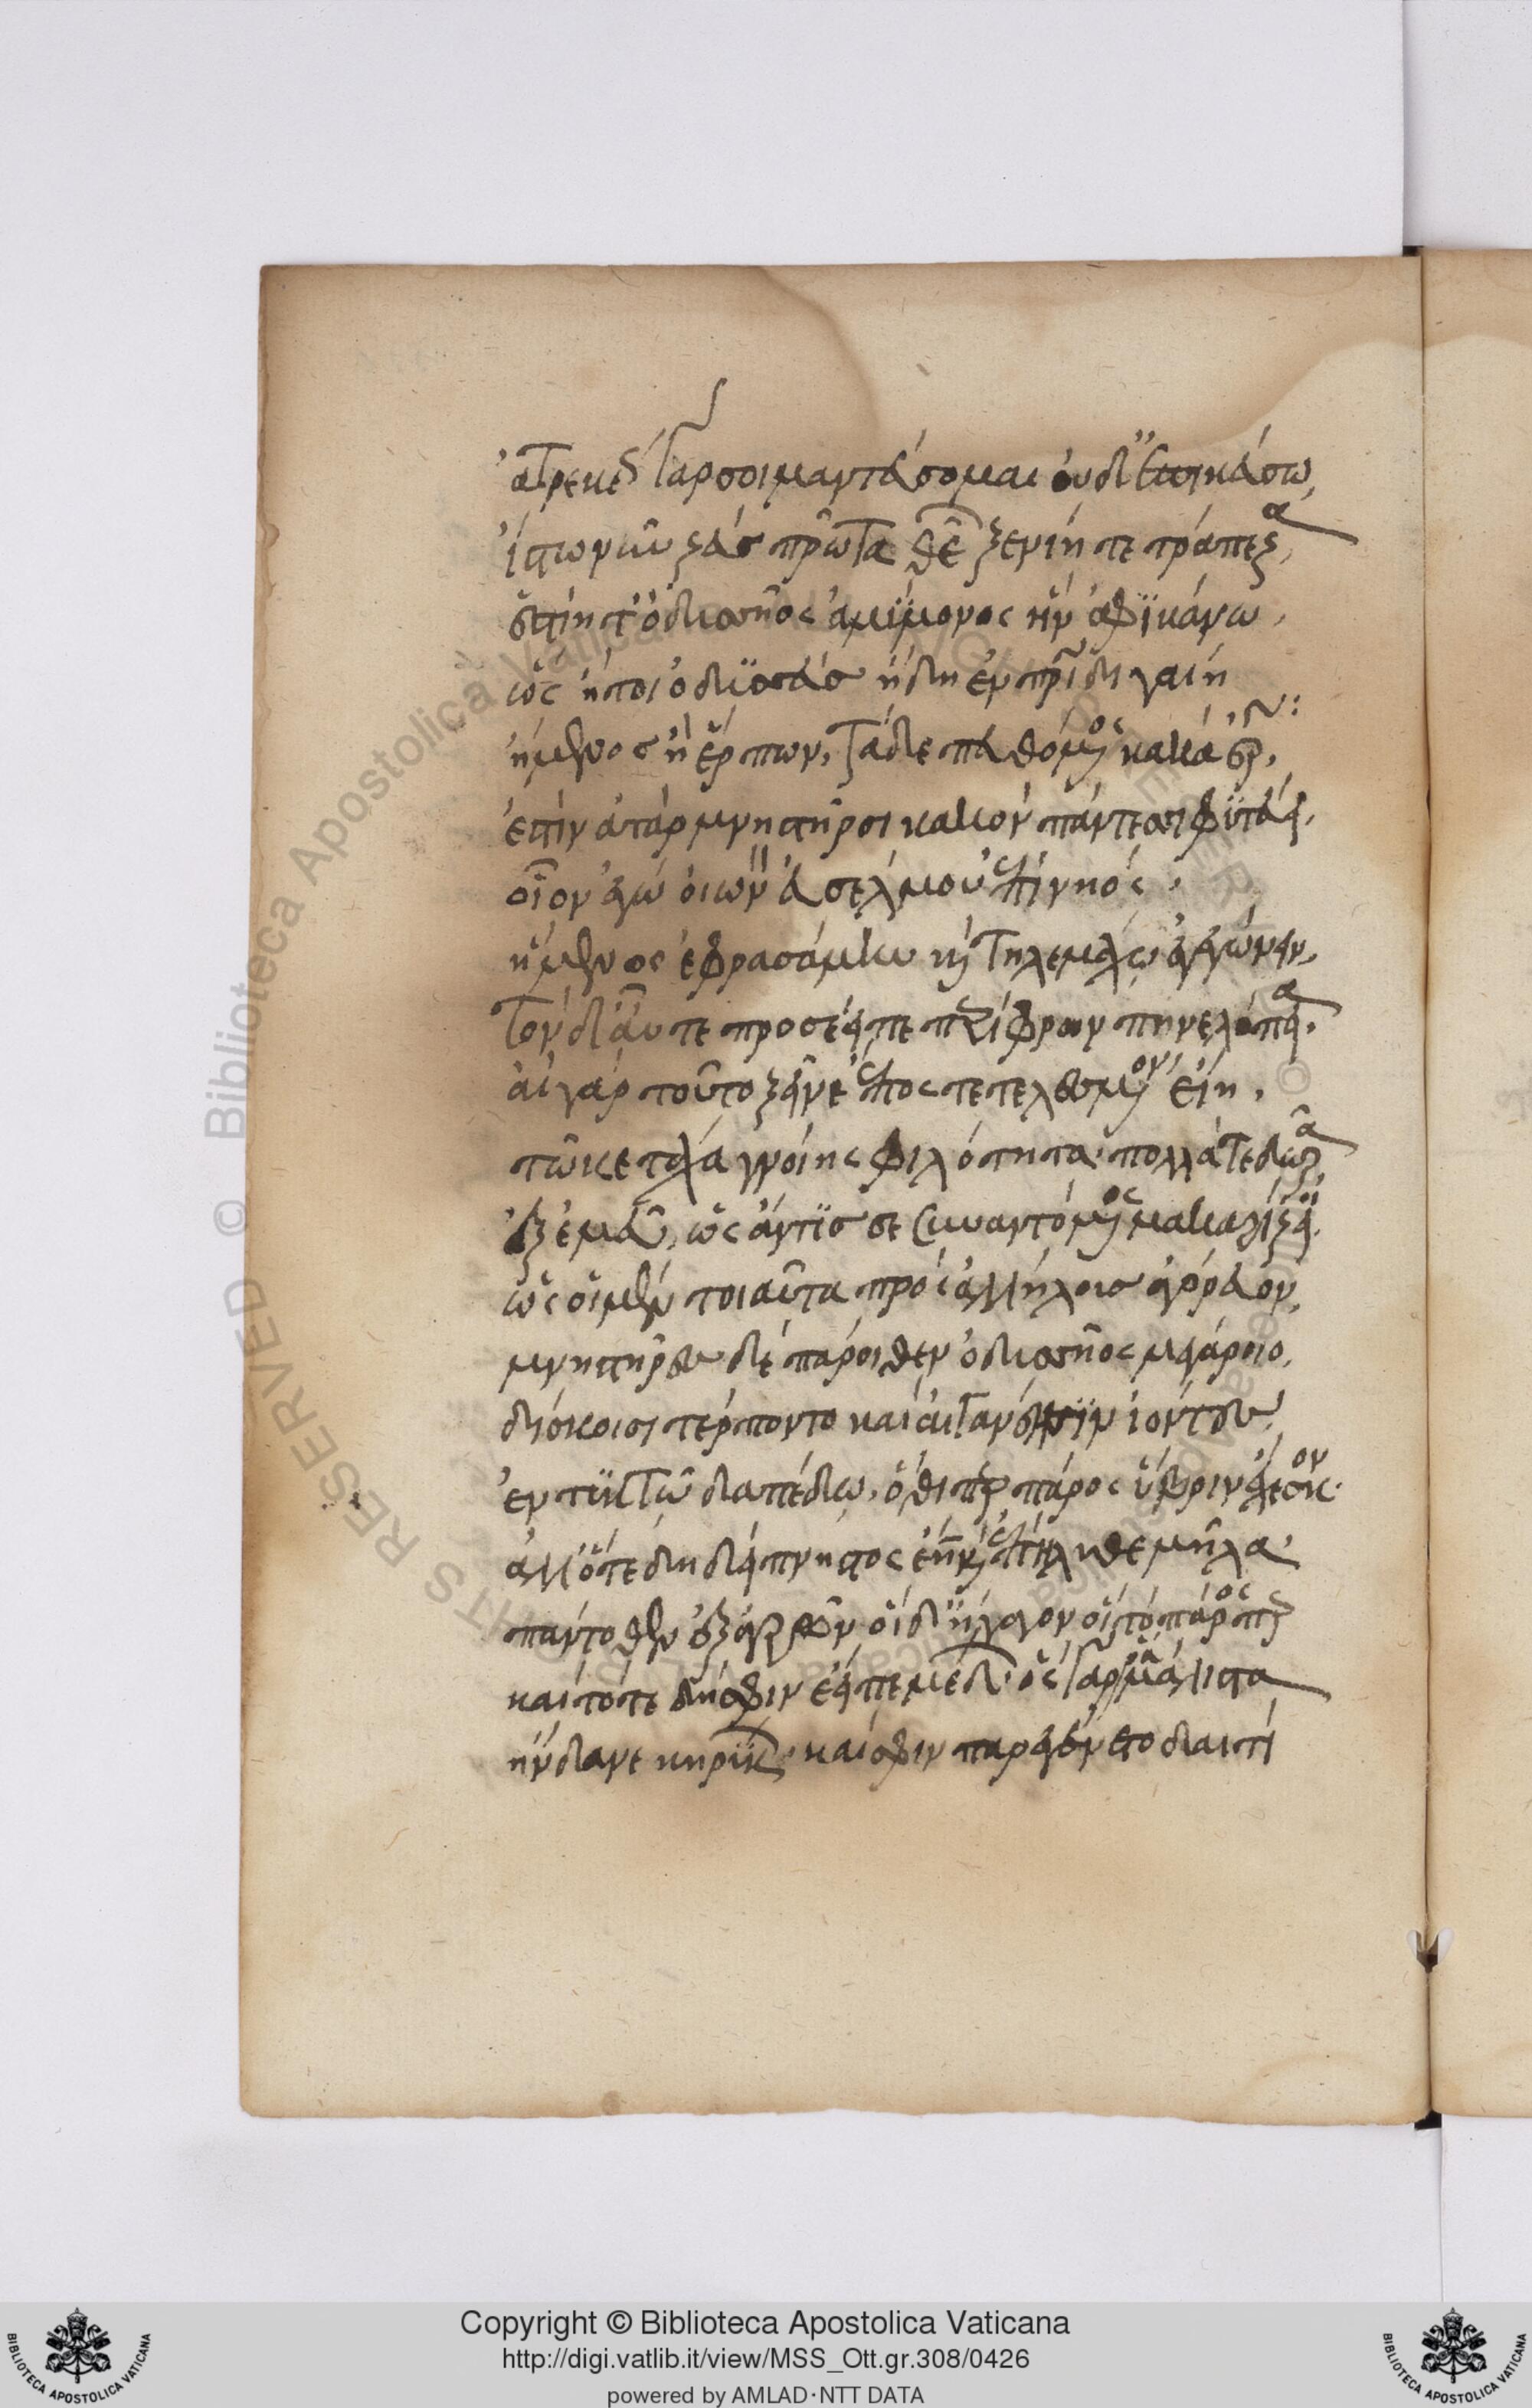 ἀτρεκέως γάρ σοι μαντεύσομαι οὐδ' ἐπικεύσω,
ἴστω νῦν ζεὺς πρῶτα θεῶν ξενίη τε τράπεζα,
ἱστίη τ' ὀδυσῆος ἀμύμονος ἣν ἀφικάνω,
ὡς ἤτοι ὀδυσεὺς ἤδη ἐν πατρίδι γαίη
ἥμενος ἢ ἕρπων, τάδε πευθόμενος κακὰ ἔργα,
ἔστιν ἀτὰρ μνηστῆρσι κακὸν πάντεσσι φυτεύει.
οἷον ἐγὼν οἰωνὸν ἐϋσσέλμου ἐπὶ νηός,
ἥμενος ἐφρασάμην καὶ τηλεμάχω ἐγεγώνευν,
τὸν δ' αὖτε προσέειπε περίφρων πηνελόπεια.
αἲ γὰρ τοῦτο ξεῖνε ἔπος τετελεσμένον εἴη,
τῶ κε τάχα γνοίης φιλότητά τε πολλά τε δῶρα
ἐξ ἐμεῦ, ὡς ἄν τίς σε συναντόμενος μακαρίζοι.
ὣς οἱ μὲν τοιαῦτα πρὸς ἀλλήλους ἀγόρευον,
μνηστῆρες δὲ πάροιθεν ὀδυσῆος μεγάροιο,
δίσκοισι τέρποντο καὶ αἰγανέησιν ἱέντες
ἐν τυκτῶ δαπέδω, ὅθι περ πάρος ὕβριν ἔχεσκον.
ἀλλ' ὅτε δὴ δείπνηστος ἔην καὶ ἐπήλυθε μῆλα
πάντοθεν ἐξ ἀγρῶν οἱ δ' ἤγαγον οἳ τὸ πάρος περ
καὶ τότε δή σφιν ἔειπε μέδων· ὃς γάρ ῥα μάλιστα
ἥνδανε κηρύκων· καί σφιν παρεγίνετο δαιτί